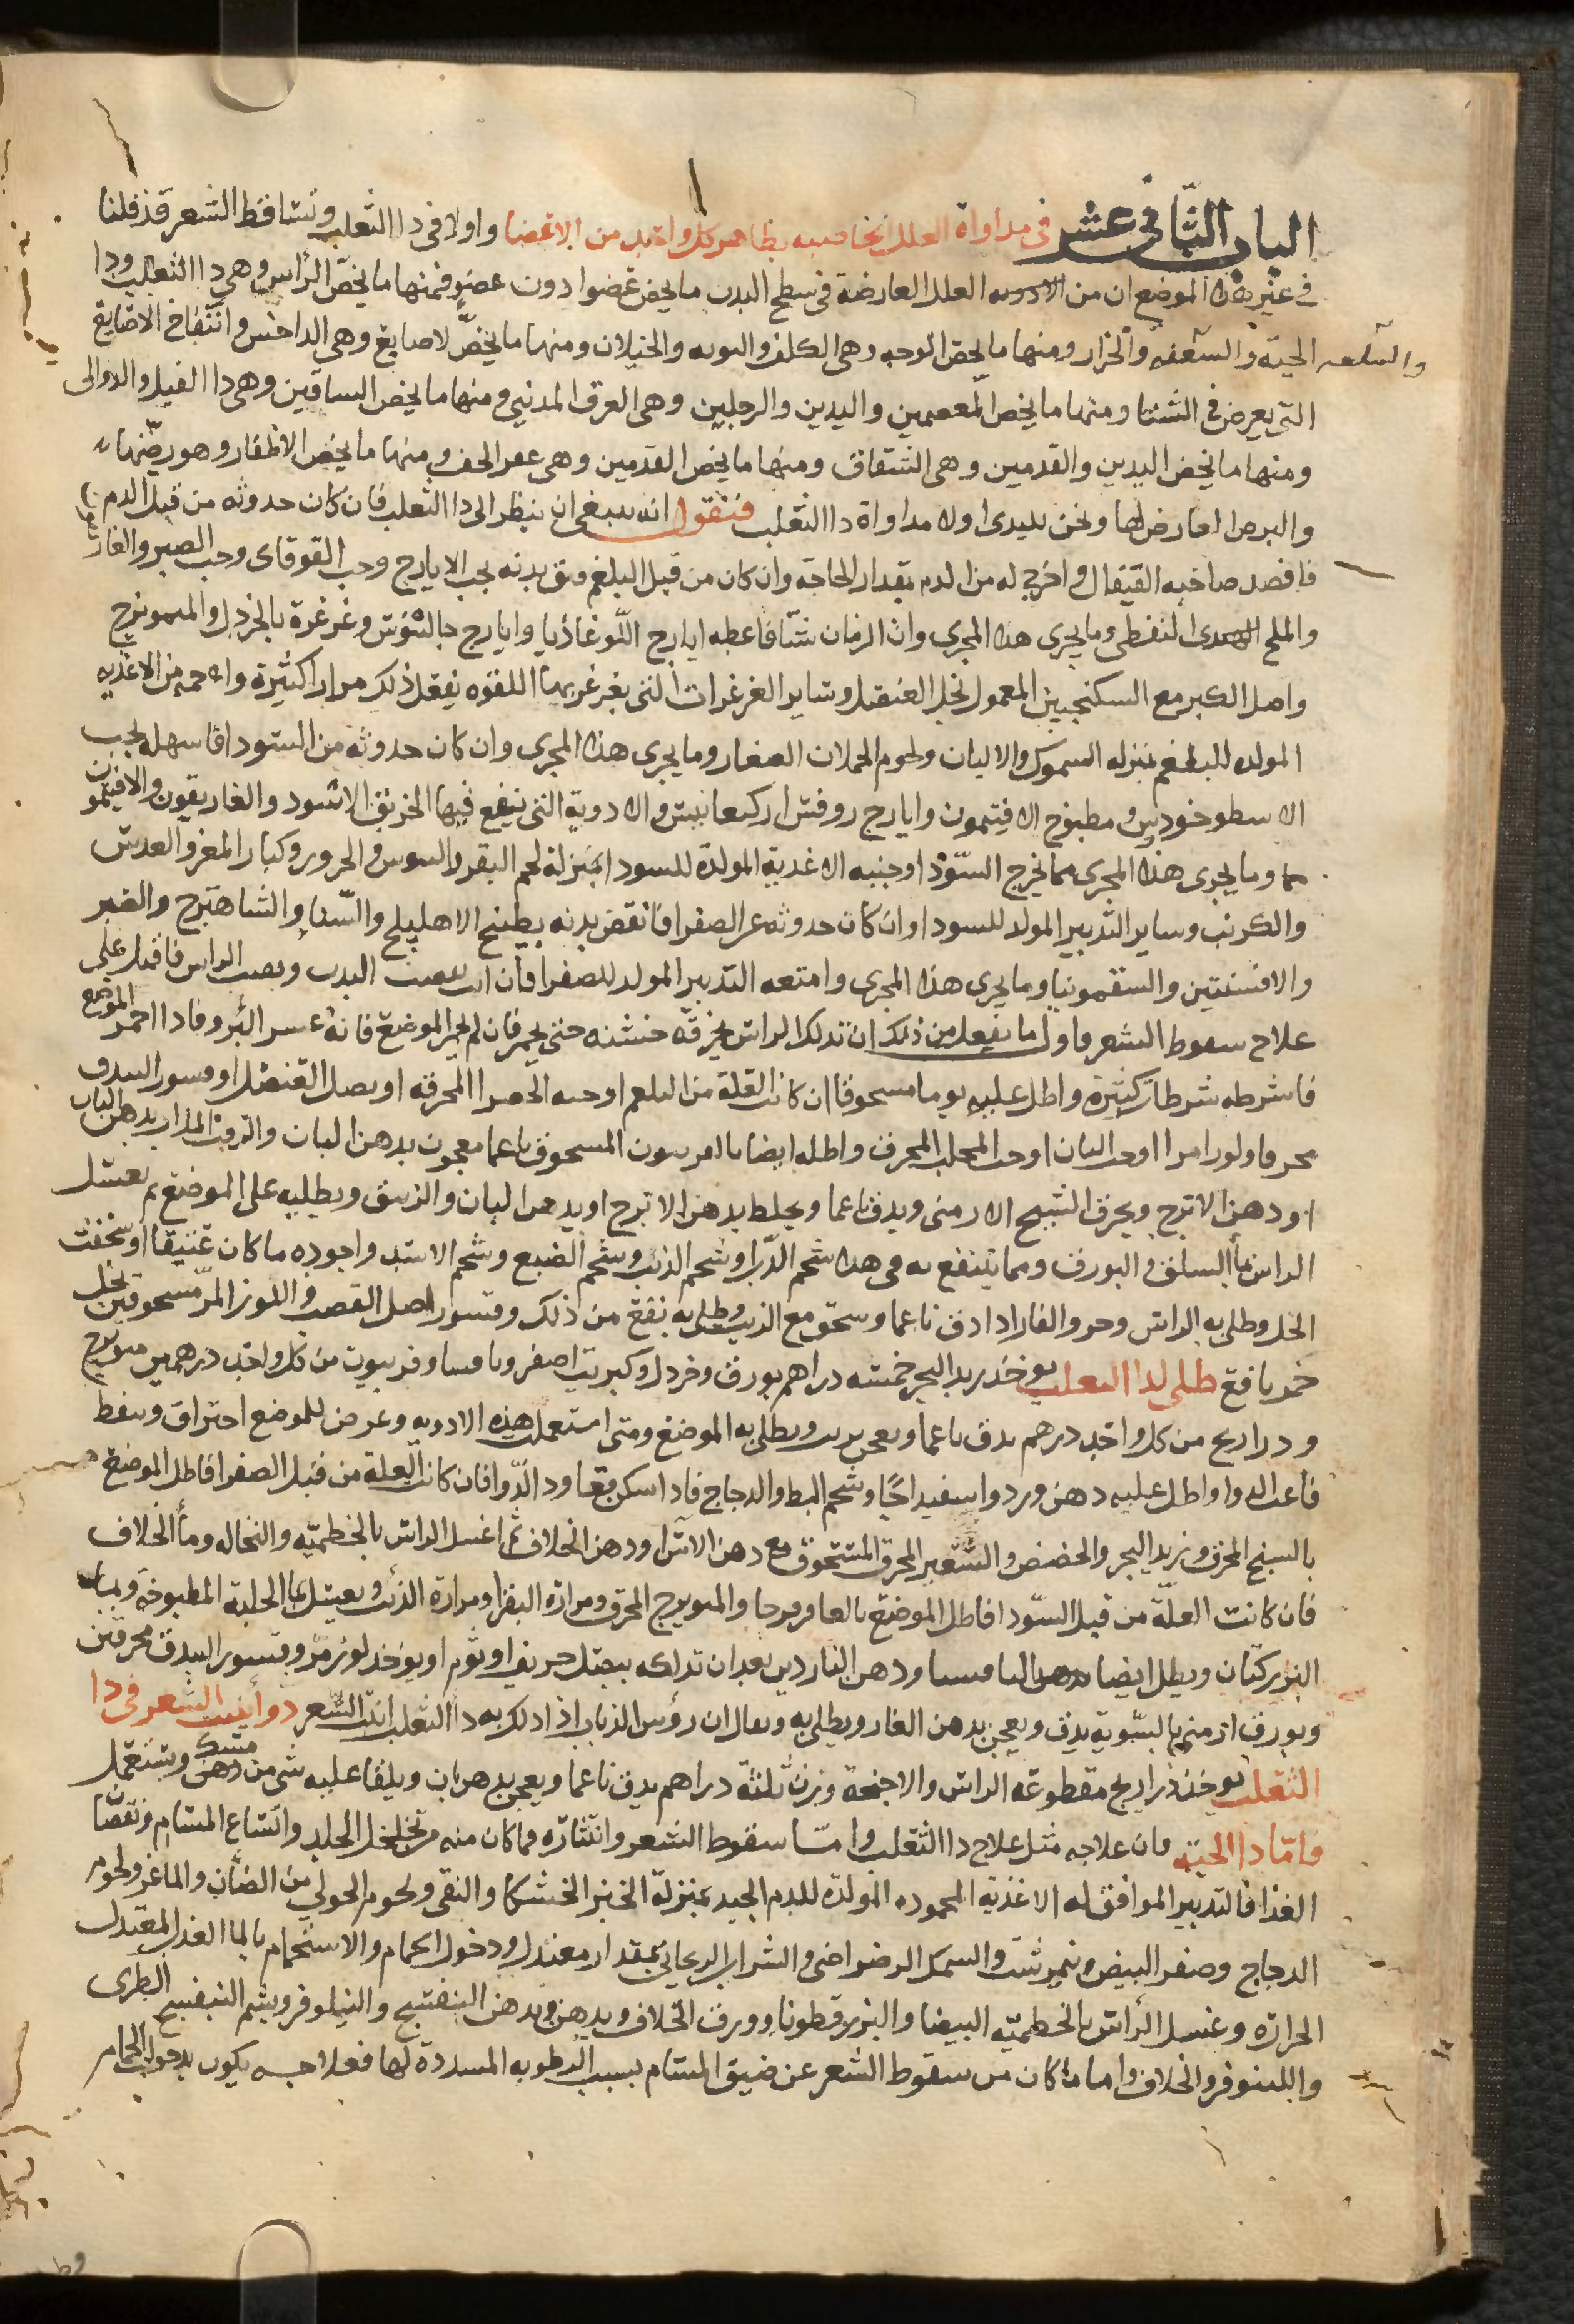 الباب الثاني عشر في مداواة العلل الخاصيه بظاهر كل واحد من الاعضا واولا في دا الثعلب وتساقط الشعر قد قلنا
في غير هذا الموضع ان من العلل العارضة في سطح البدن ما يخص عضوا دون عضو فمنها ما يخص الرأس وهي دا الثعلب ودا
الحية والسعفه والحزاز ومنها ما يخص الوجه وهي الكلف والخيلان ومنها ما يخص الاصابع وهي الداحس وانتفاخ الاصابع
التي يعرض في الشتا ومنها ما يخص المعصمين واليدين والرجلين وهي العرق المدني ومنها ما يخص الساقين وهي دا الفيل والدوالى
ومنها ما يخص اليدين والقدمين وهي الشقاق ومنها ما يخص القدمين وهي عقر الخف ومنها ما يخص الاظفار وهو رضها
والبرص العارض لها ونحن نبتدى اولا مداواة دا الثعلب فنقول انه ينبغي ان ينظر الى دا الثعلب فان كان حدوثه من قبل الدم
فافصد صاحبه القيفال واخرج له من الدم بقدار الحاجه وان كان من قبل البلغم فنق بدنه بحب الايارج وحب القوقاى وحب الصبر والغار
والملح النفطى وما يجرى هذا المجرى وان الزمان شتا فاعطه ايارج اللوغاذيا وايارج جالينوس وغرغرة بالخردل والميويزج
واصل الكبر مع السكنجبين المعمول بخل العنصل وساير الغرغرات التي يغرغر بها اللقوه يفعل ذلك مرارا كثيرة واحمه من الاغذيه
المولده للبلغم بمنزله السموك والالبان ولحوم الحملان الصغار وما يجرى هذا المجرى وان كان حدوثه من السودا فاسهله بحب
الاسطوخودس ومطبوخ الافتيمون وايارج روفس اركيغانيس والادوية التي ينفع فيها الخربق الاسود والغاريقون والافيتمون
وما يجرى هذا المجرى مما يخرج السودا وجنبه الاغدية المولدة للسودا بمنزلة لحم البقر والتيوس والجزور وكبار المعز والعدس
والكرنب وساير التدبير المولد للسودا وان كان حدوثه عن الصفرا فانقض بدنه بطبيخ الاهليلج والسنا والشاهترج والصبر
والافسنتين والسقمونيا وما يجرى هذا المجرى وامنعه التدبير المولد للصفرا فان انت نقيت البدن ونقيت الراس فاقبل على
علاج سقوط الشعر واول ما يفعل من ذلك ان تدلك الراس بخرقه خشنه حتى يحمر فان لم يحمر الموضع فانه عسر البرو فاذا احمر الموضع
فاشرطه شرطات كثيره واطل عليه ثوما مسحوقا ان كانت العلة من البلغم او المحرقه او بصل العنصل او قشور البندق
او حب البان او حب المحلب المحرق واطله ايضا بالفربيون المسحوق ناعما معجون بدهن البان والزفت المذاب بدهن البان
او دهن الاترج ويحرق الشيح الارمنى ويدق ناعما ويخلط بدهن الاترج او بدهن البان والزيبق ويطليه على الموضع ثم يغسل
الراس بما السلق والبورق ومما ينتفع به في هذا شحم الدب او شحم الذئب وشحم الضبع وشحم الاسد واجوده ما كان عتيقا
الخل وطلى به الراس وخرو الفار اذا دق ناعما وسحق مع الزيت وطلى به نفع من ذلك وقشور اصل القصب واللوز المر مسحوقين بخل
خمر نافع طلى لدا الثعلب يوخذ زبد البحر خمسه دراهم بورق وخردل وكبريت اصفر وثافسيا وفربيون من كل واحد درهمين ميويزج
وذراريح من كل واحد درهم يدق ناعما ويعجن بزيت ويطلى به الموضع ومتى استعملت هذه الادويه وعرض للموضع احتراق وتنفط
فاعد الدوا واطل عليه دهن ورد واسفيداجا وشحم البط والدجاج فاذا سكن فعاود الدوا فان كانت العلة من قبل الصفرا فاطل الموضع
بالشيح المحرق وزبد البحر والحضض والشعير المحرق المسحوق مع دهن الاس او دهن الخلاف ثم اغسل الراس بالخطميه والنخاله وما الخلاف
فان كانت العلة من قبل السودا فاطل الموضع بالعاقرقرحا والميويزج المحرق ومرارة البقر او مرارة الذئب ويغسل بما الحلبة المطبوخه
البزركتان ويطلى ايضا بدهن الثافسيا ودهن الناردين بعد ان تدلكه ببصل حريف او ثوم او يوخذ لوز مر وقشور البندق محرقين
وبورق ارمنى بالسوية يدق ويعجن بدهن الغار ويطلى به ويقال ان رؤس الذباب اذا دلك به دا الثعلب انبت الشعر دوا ينبت الشعر في دا
الثعلب يوخذ ذراريح مقطوعه الراس والاجنحة وزن ثلثة دراهم يدق ناعما ويعجن بدهن بان ويلقا عليه شى من دهن مسك ويستعمل
فاما دا الحيه فان علاجه مثل علاج دا الثعلب واما سقوط الشعر وانتثاره فما كان منه من تخلخل الجلد واتساع المسام ونقصان
الغذا فالتدبير الموافق له الاغذية المحموده المولدة للدم الجيد بمنزلة الخبز الخشكا والنقى ولحوم الحولى من الضان والماعز ولحوم
الدجاج وصفر البيض نيمرشت والسمك الرضراضى والشراب الريحانى بمقدار معتدل ودخول الحمام والاستحمام بالما العذب المعتدل
الحرارة وغسل الراس بالخطميه البيضا والبزرقطونا وورق الخلاف ويدهن بدهن البنفسج والنيلوفر ويشم البنفسج الطرى
والنيلوفر والخلاف واما ما كان من سقوط الشعر عن ضيق المسام بسبب الرطوبه المسددة لها فعلاجه يكون بدخول الحمام